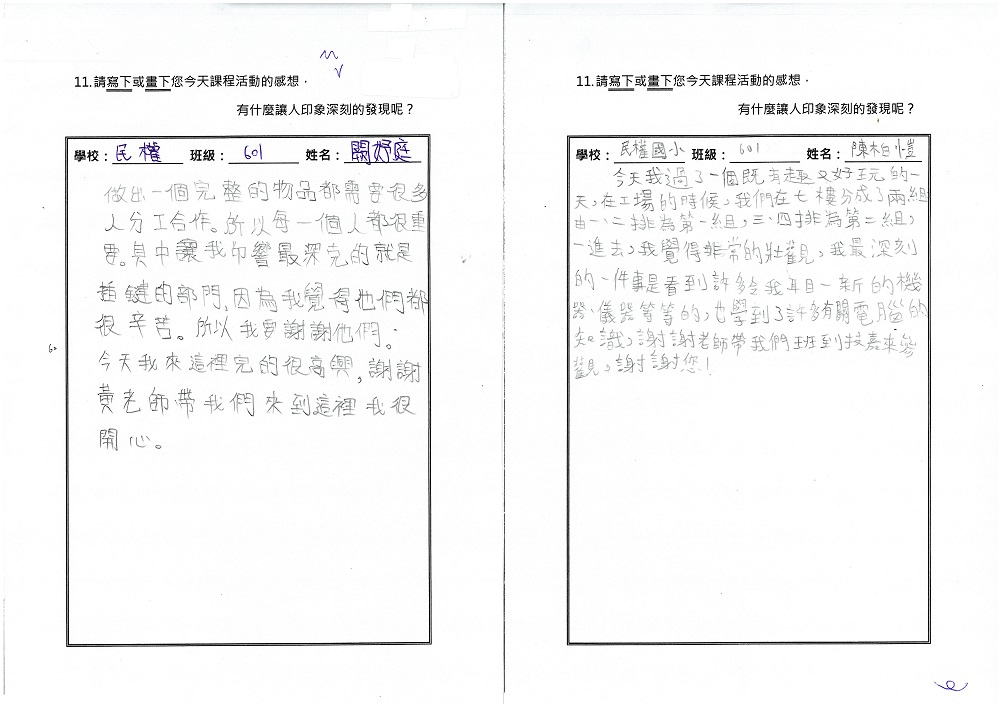 11.請寫下或畫下您今天課程活動的感想，
有什麼讓人印象深刻的發現呢？
學校：民權 班級：601 姓名：關妤庭
做出一個完整的物品都需要很多
人分工合作。所以每一個人都很重
要。其中讓我印響最深克的就是
插鍵的部門，因為我覺得他們都
很辛苦。所以我要謝謝他們。
今天我來這裡完的很高興，謝謝
黃老師帶我們來到這裡我很
開心。
11.請寫下或畫下您今天課程活動的感想，
有什麼讓人印象深刻的發現呢？
學校：民權國小 班級：601 姓名：陳柏愷
今天我過了一個既有趣又好玩的一
天，在工場的時候，我們在七樓分成了兩組
由一、二排為第一組，三、四排為第二組，
一進去，我覺得非常的壯觀，我最深刻
的一件事是看到許多令我耳目一新的機
器、儀器等等的，也學到了許多有關電腦的
知識，謝謝老師帶我們班到技嘉來參
觀，謝謝您！